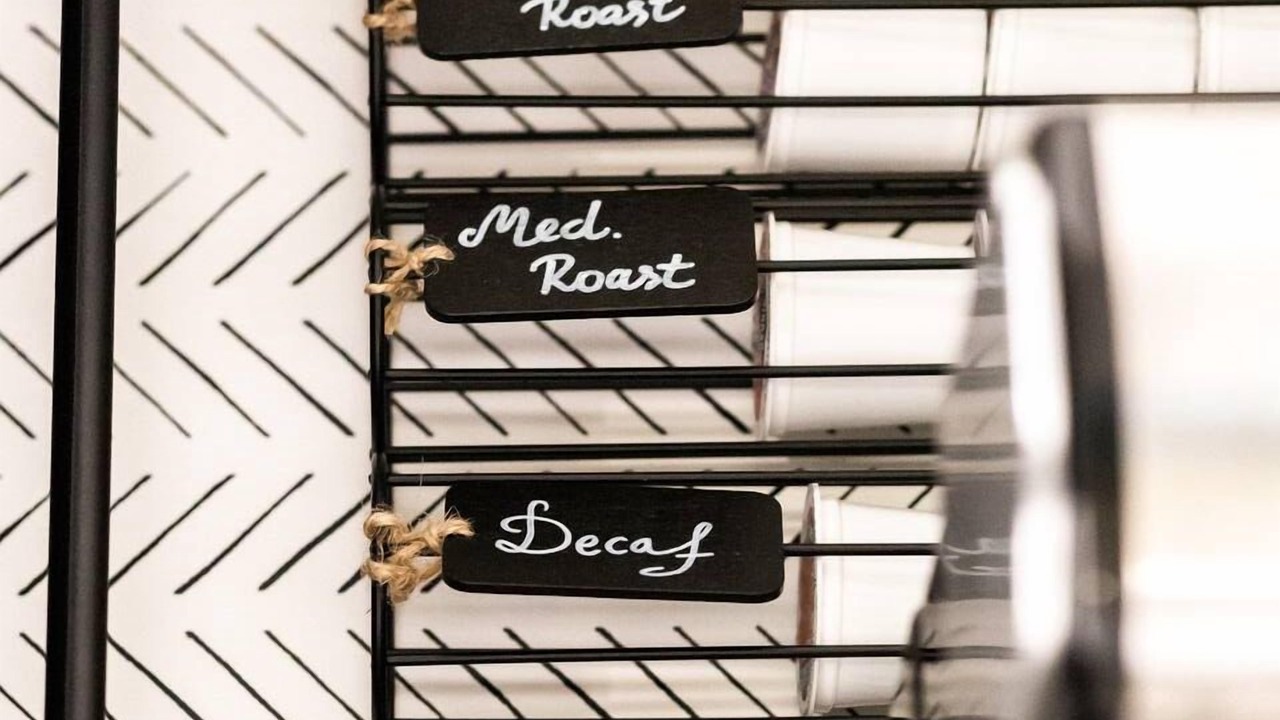 Roast
Med.
Roast
Decaf